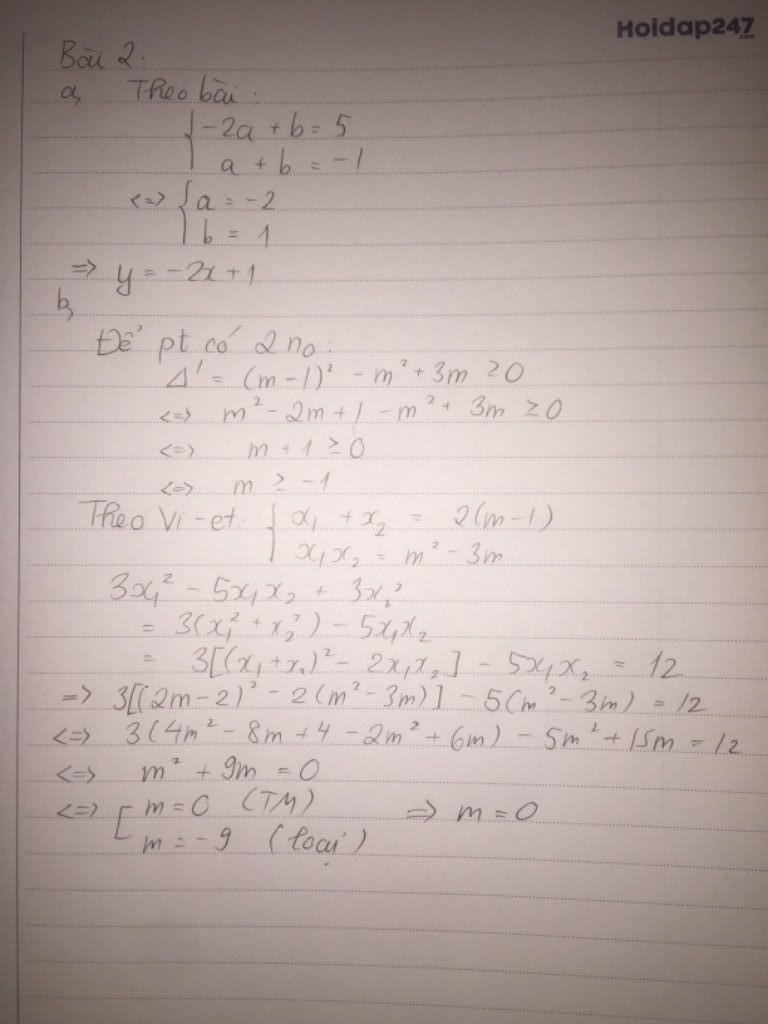 Hoidap247.com
Bài 2:
a, Theo bài:
{ -2a + b = 5
a + b = -1
<=> { a = -2
b = 1
=> y = -2x + 1
b,
Để pt có 2 no:
Δ' = (m-1)² - m² + 3m ≥ 0
<=> m² - 2m + 1 - m² + 3m ≥ 0
<=> m + 1 ≥ 0
<=> m ≥ -1
Theo Vi-et: { x₁ + x₂ = 2(m-1)
x₁x₂ = m² - 3m
3x₁² - 5x₁x₂ + 3x₂²
= 3(x₁² + x₂²) - 5x₁x₂
= 3[(x₁+x₂)² - 2x₁x₂] - 5x₁x₂ = 12
=> 3[(2m-2)² - 2(m² - 3m)] - 5(m² - 3m) = 12
<=> 3(4m² - 8m + 4 - 2m² + 6m) - 5m² + 15m = 12
<=> m² + 9m = 0
<=> [ m = 0 (TM) => m = 0
m = -9 (loại)